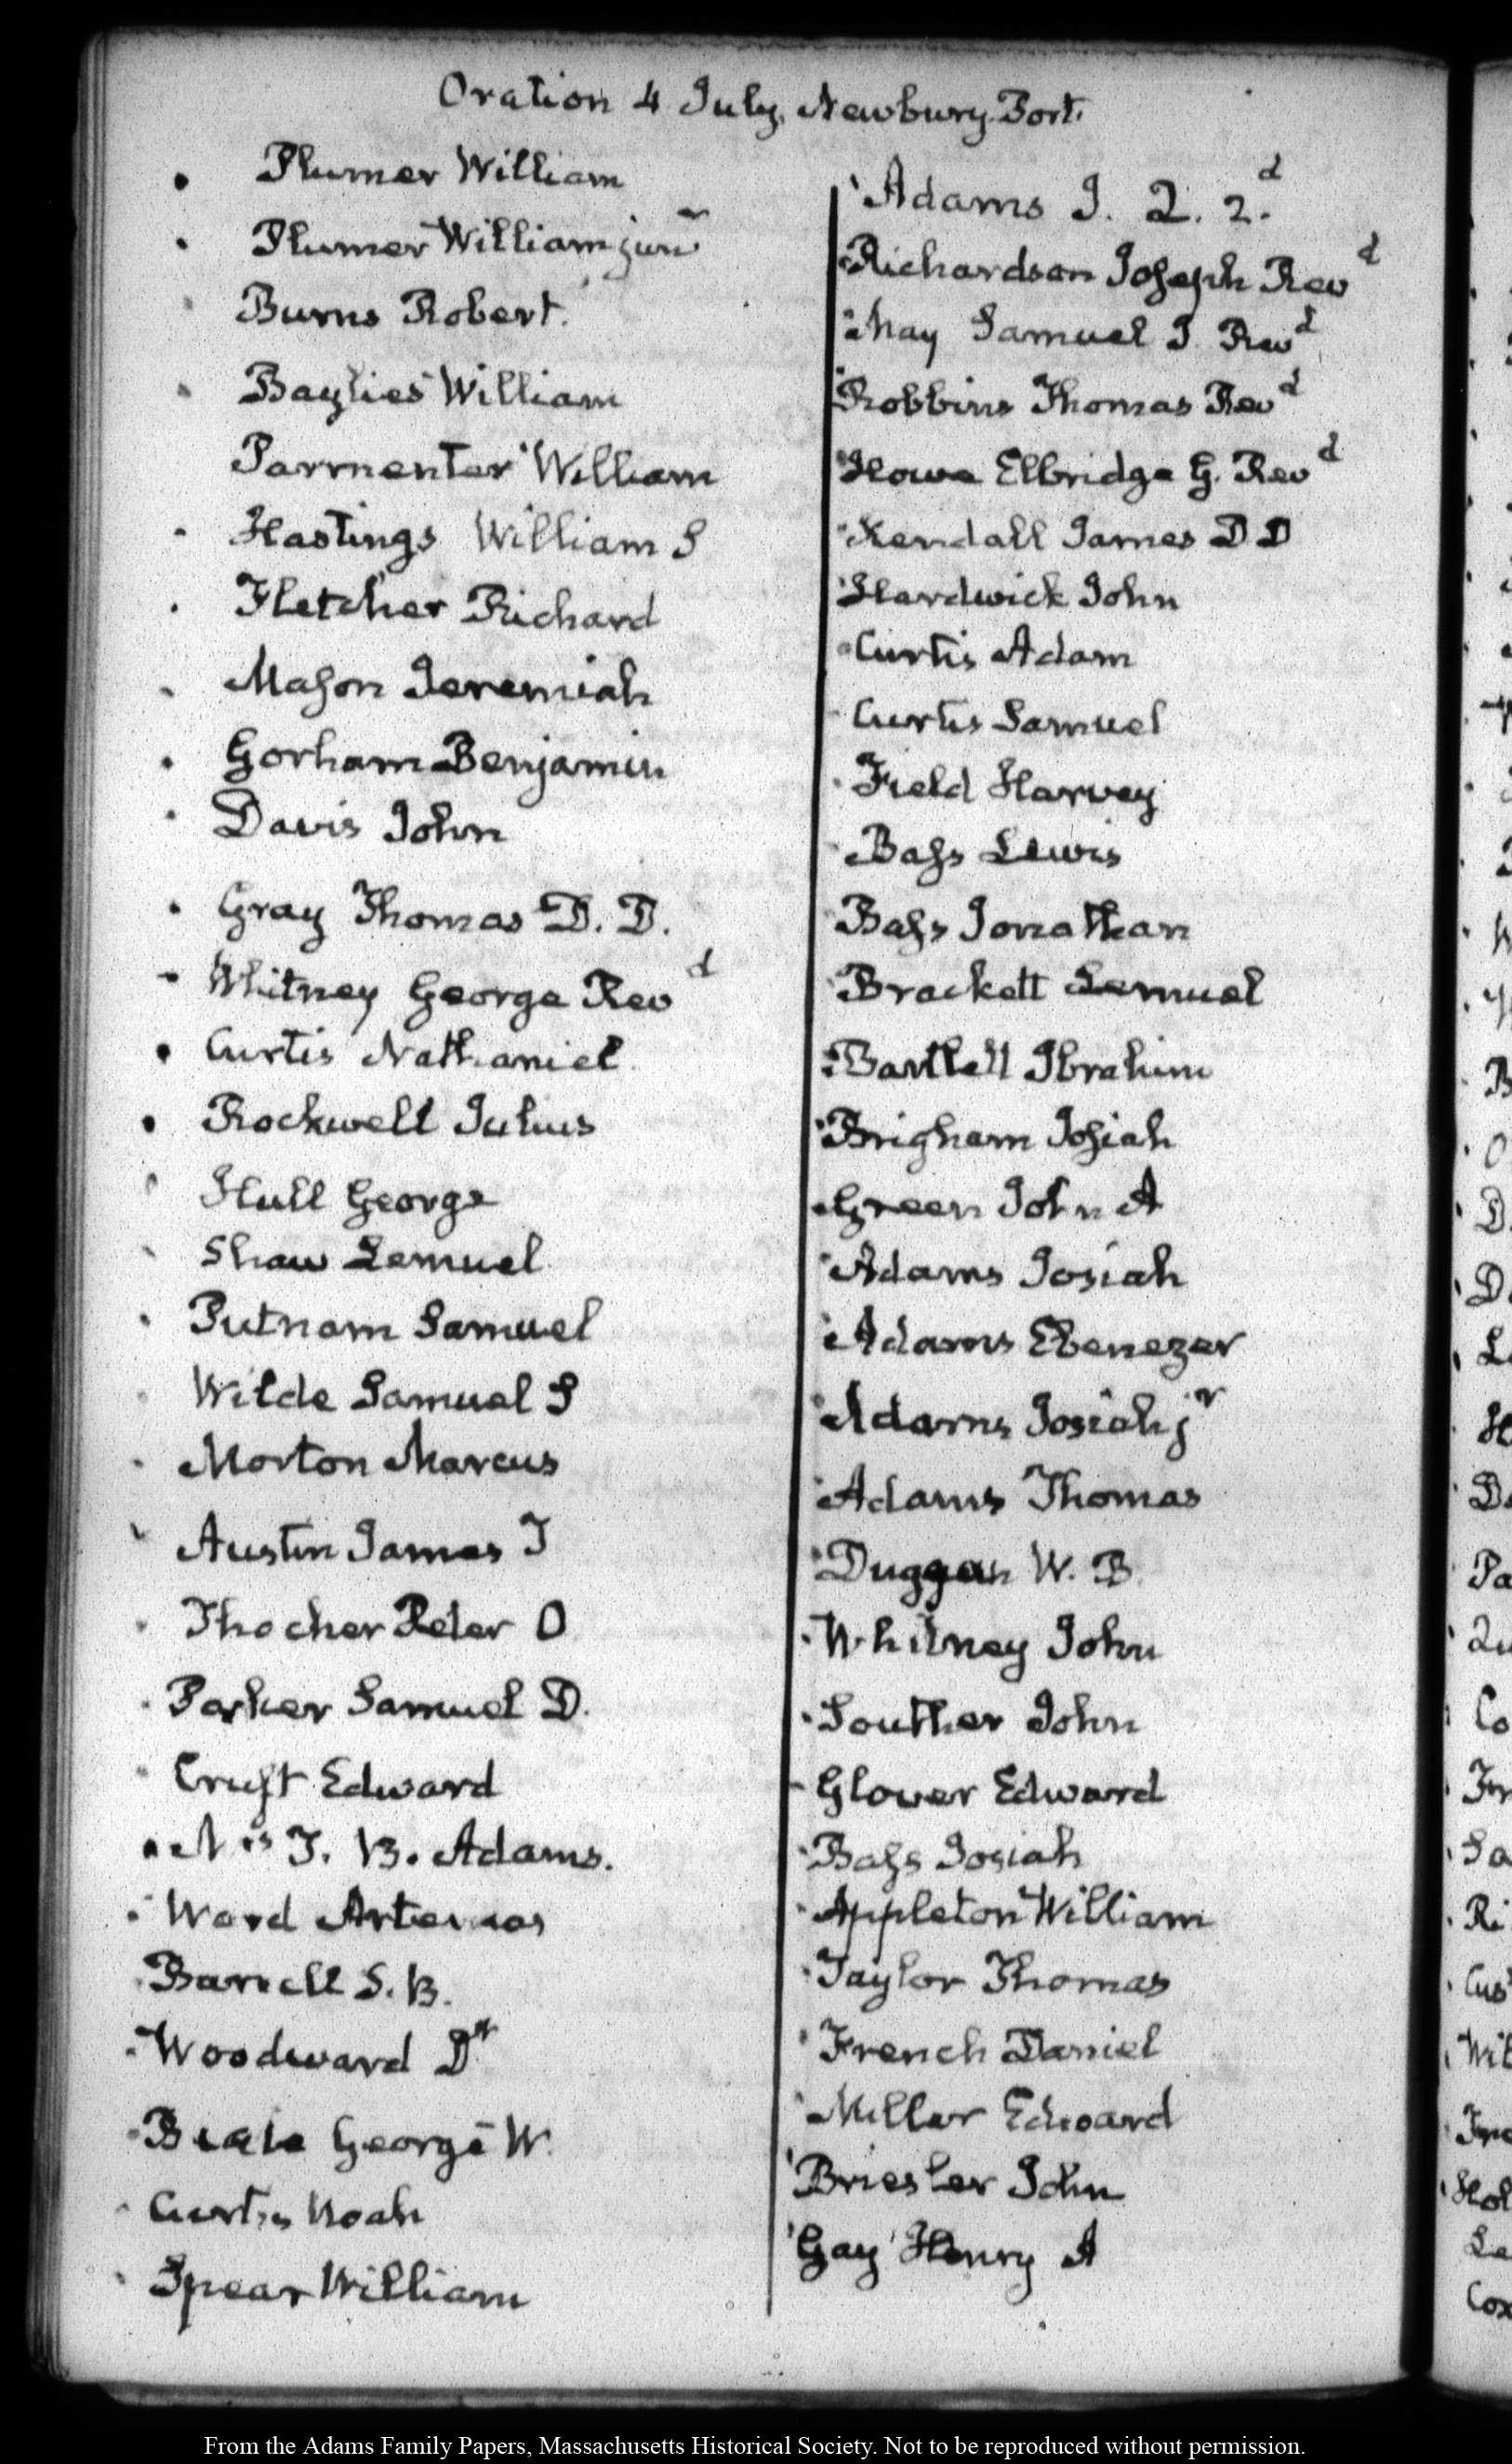 Oration 4 July, Newbury-Port.
Plumer William
Plumer William junr
Burns Robert.
Baylies William
Parmenter William
Hastings William S
Fletcher Richard
Mason Jeremiah
Gorham Benjamin
Davis John
Gray Thomas D. D.
Whitney George Revd
Curtis Nathaniel
Rockwell Julius
Hull George
Shaw Lemuel
Putnam Samuel
Wilde Samuel S
Morton Marcus
Austin James T
Thacher Peter O
Parker Samuel D.
Cruft Edward
Mrs T. B. Adams.
Ward Artemas
Barrell S. B.
Woodward Dr
Beale George W.
Curtis Noah
Spear William
Adams J. Q. 2.d
Richardson Joseph Revd
May Samuel J. Revd
Robbins Thomas Revd
Howe Elbridge G. Revd
Kendall James D D
Hardwick John
Curtis Adam
Curtis Samuel
Field Harvey
Bass Lewis
Bass Jonathan
Brackett Lemuel
Bartlett Ibrahim
Brigham Josiah
Green John A
Adams Josiah
Adams Ebenezer
Adams Josiah jr
Adams Thomas
Duggan W. B.
Whitney John
Souther John
Glover Edward
Bass Josiah
Appleton William
Taylor Thomas
French Daniel
Miller Edward
Briesler John
Gay Henry A
From the Adams Family Papers, Massachusetts Historical Society. Not to be reproduced without permission.